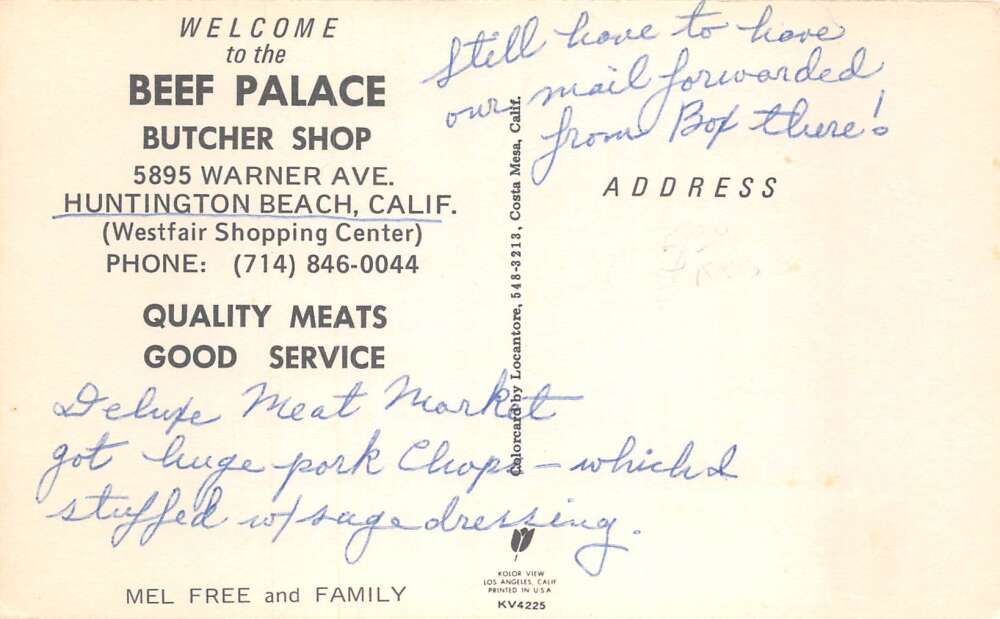 WELCOME
to the
BEEF PALACE
BUTCHER SHOP
5895 WARNER AVE.
HUNTINGTON BEACH, CALIF.
(Westfair Shopping Center)
PHONE: (714) 846-0044
QUALITY MEATS
GOOD SERVICE
Deluxe Meat Market
got huge pork Chops - which I
stuffed w/ sage dressing.
MEL FREE and FAMILY
Colorcard by Locantore, 548-3213, Costa Mesa, Calif.
KOLOR VIEW
LOS ANGELES, CALIF
PRINTED IN U.S.A
KV4225
Still have to have
our mail forwarded
from Box there!
ADDRESS